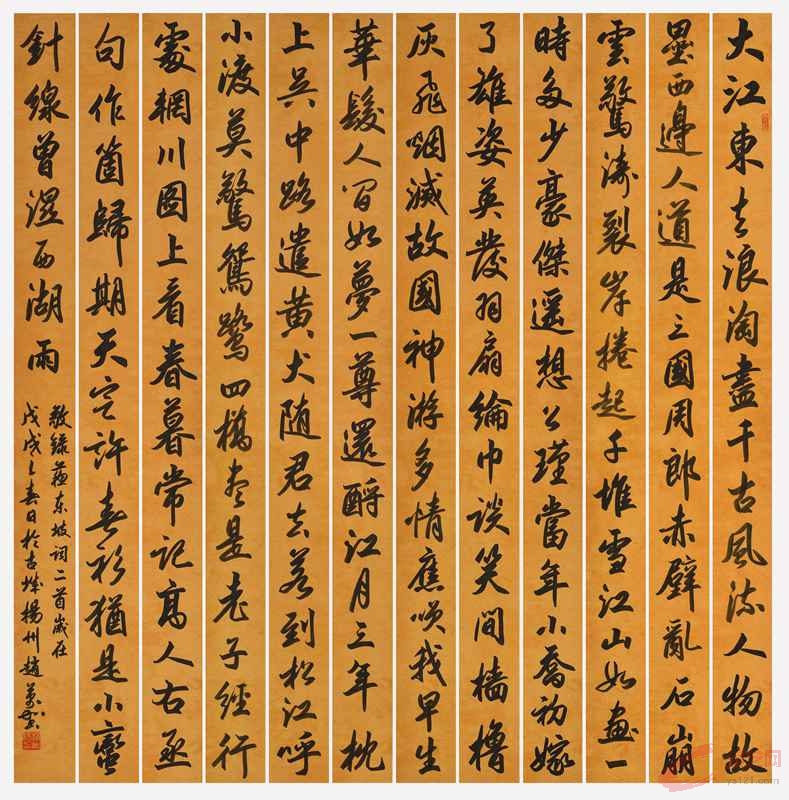 大江東去浪淘盡千古風流人物故
壘西邊人道是三國周郎赤壁亂石崩
雲驚濤裂岸捲起千堆雪江山如畫一
時多少豪傑遥想公瑾當年小喬初嫁
了雄姿英發羽扇綸巾談笑間檣櫓
灰飛烟滅故國神游多情應笑我早生
華髮人間如夢一尊還酹江月三年枕
上吳中路遣黄犬随君去若到松江呼
小渡莫驚鴛鷺四橋盡是老子經行
處輞川圖上看春暮常記高人右丞
句作箇歸期天定許春衫猶是小蠻
針線曾濕西湖雨
敬録蘇东坡詞二首歲在
戊戌之春日於古城揚州趙萬